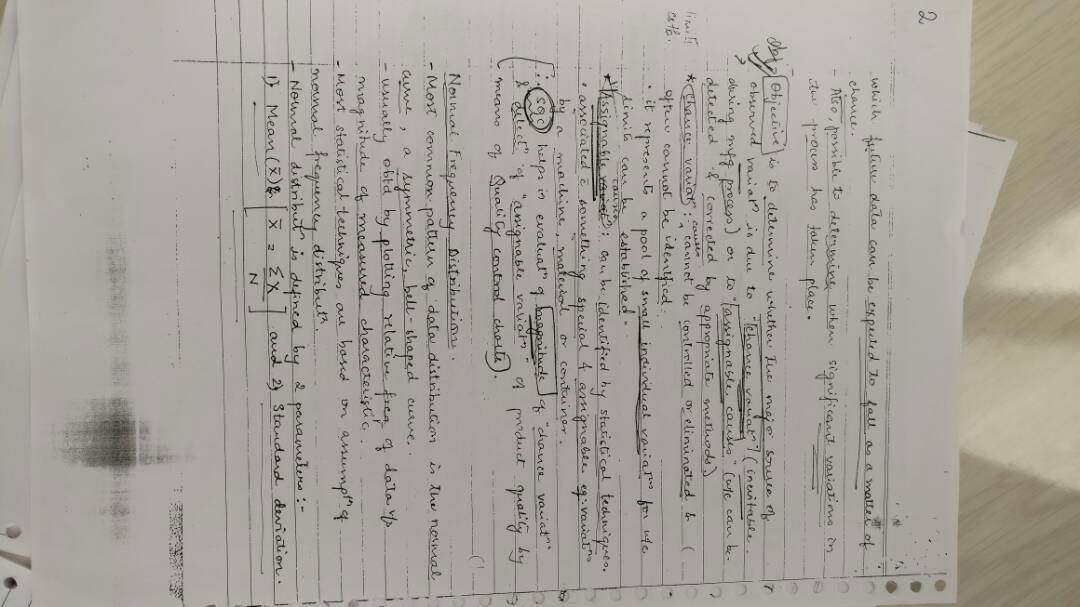 2
which future data can be expected to fall as a matter of
chance.
- Also, possible to determine when significant variations in
the process has taken place.
Obj:-
Objective is to determine whether the major source of
observed variatⁿ is due to "chance variatⁿ" (inevitable
during mfg process) or to "assignable causes" (w/c can be
detected & corrected by appropriate methods)
* Chance variatⁿ : causes cannot be controlled or eliminated &
often cannot be identified.
limits
• it represents a pool of small individual variatⁿs for w/c
limits can be established.
* Assignable causes : can be identified by statistical techniques.
• associated c̄ something special & assignable eg: variatⁿs
by a machine, material or container.
∴ SQC helps in evaluatⁿ of magnitude of "chance variatⁿ"
& detectⁿ of "assignable variatⁿ" of product quality by
means of Quality control charts.
Normal Frequency Distribution.
- Most common pattern of data distribution is the normal
curve, a symmetric, bell-shaped curve.
- usually obtd by plotting relative freqⁿ of data v/s
magnitude of measured characteristic.
- Most statistical techniques are based on assumptⁿ of
normal frequency distributⁿ.
- Normal distributⁿ is defined by 2 parameters :-
1) Mean (x̄) & [ X̄ = ΣX / N ] and 2) Standard deviation.